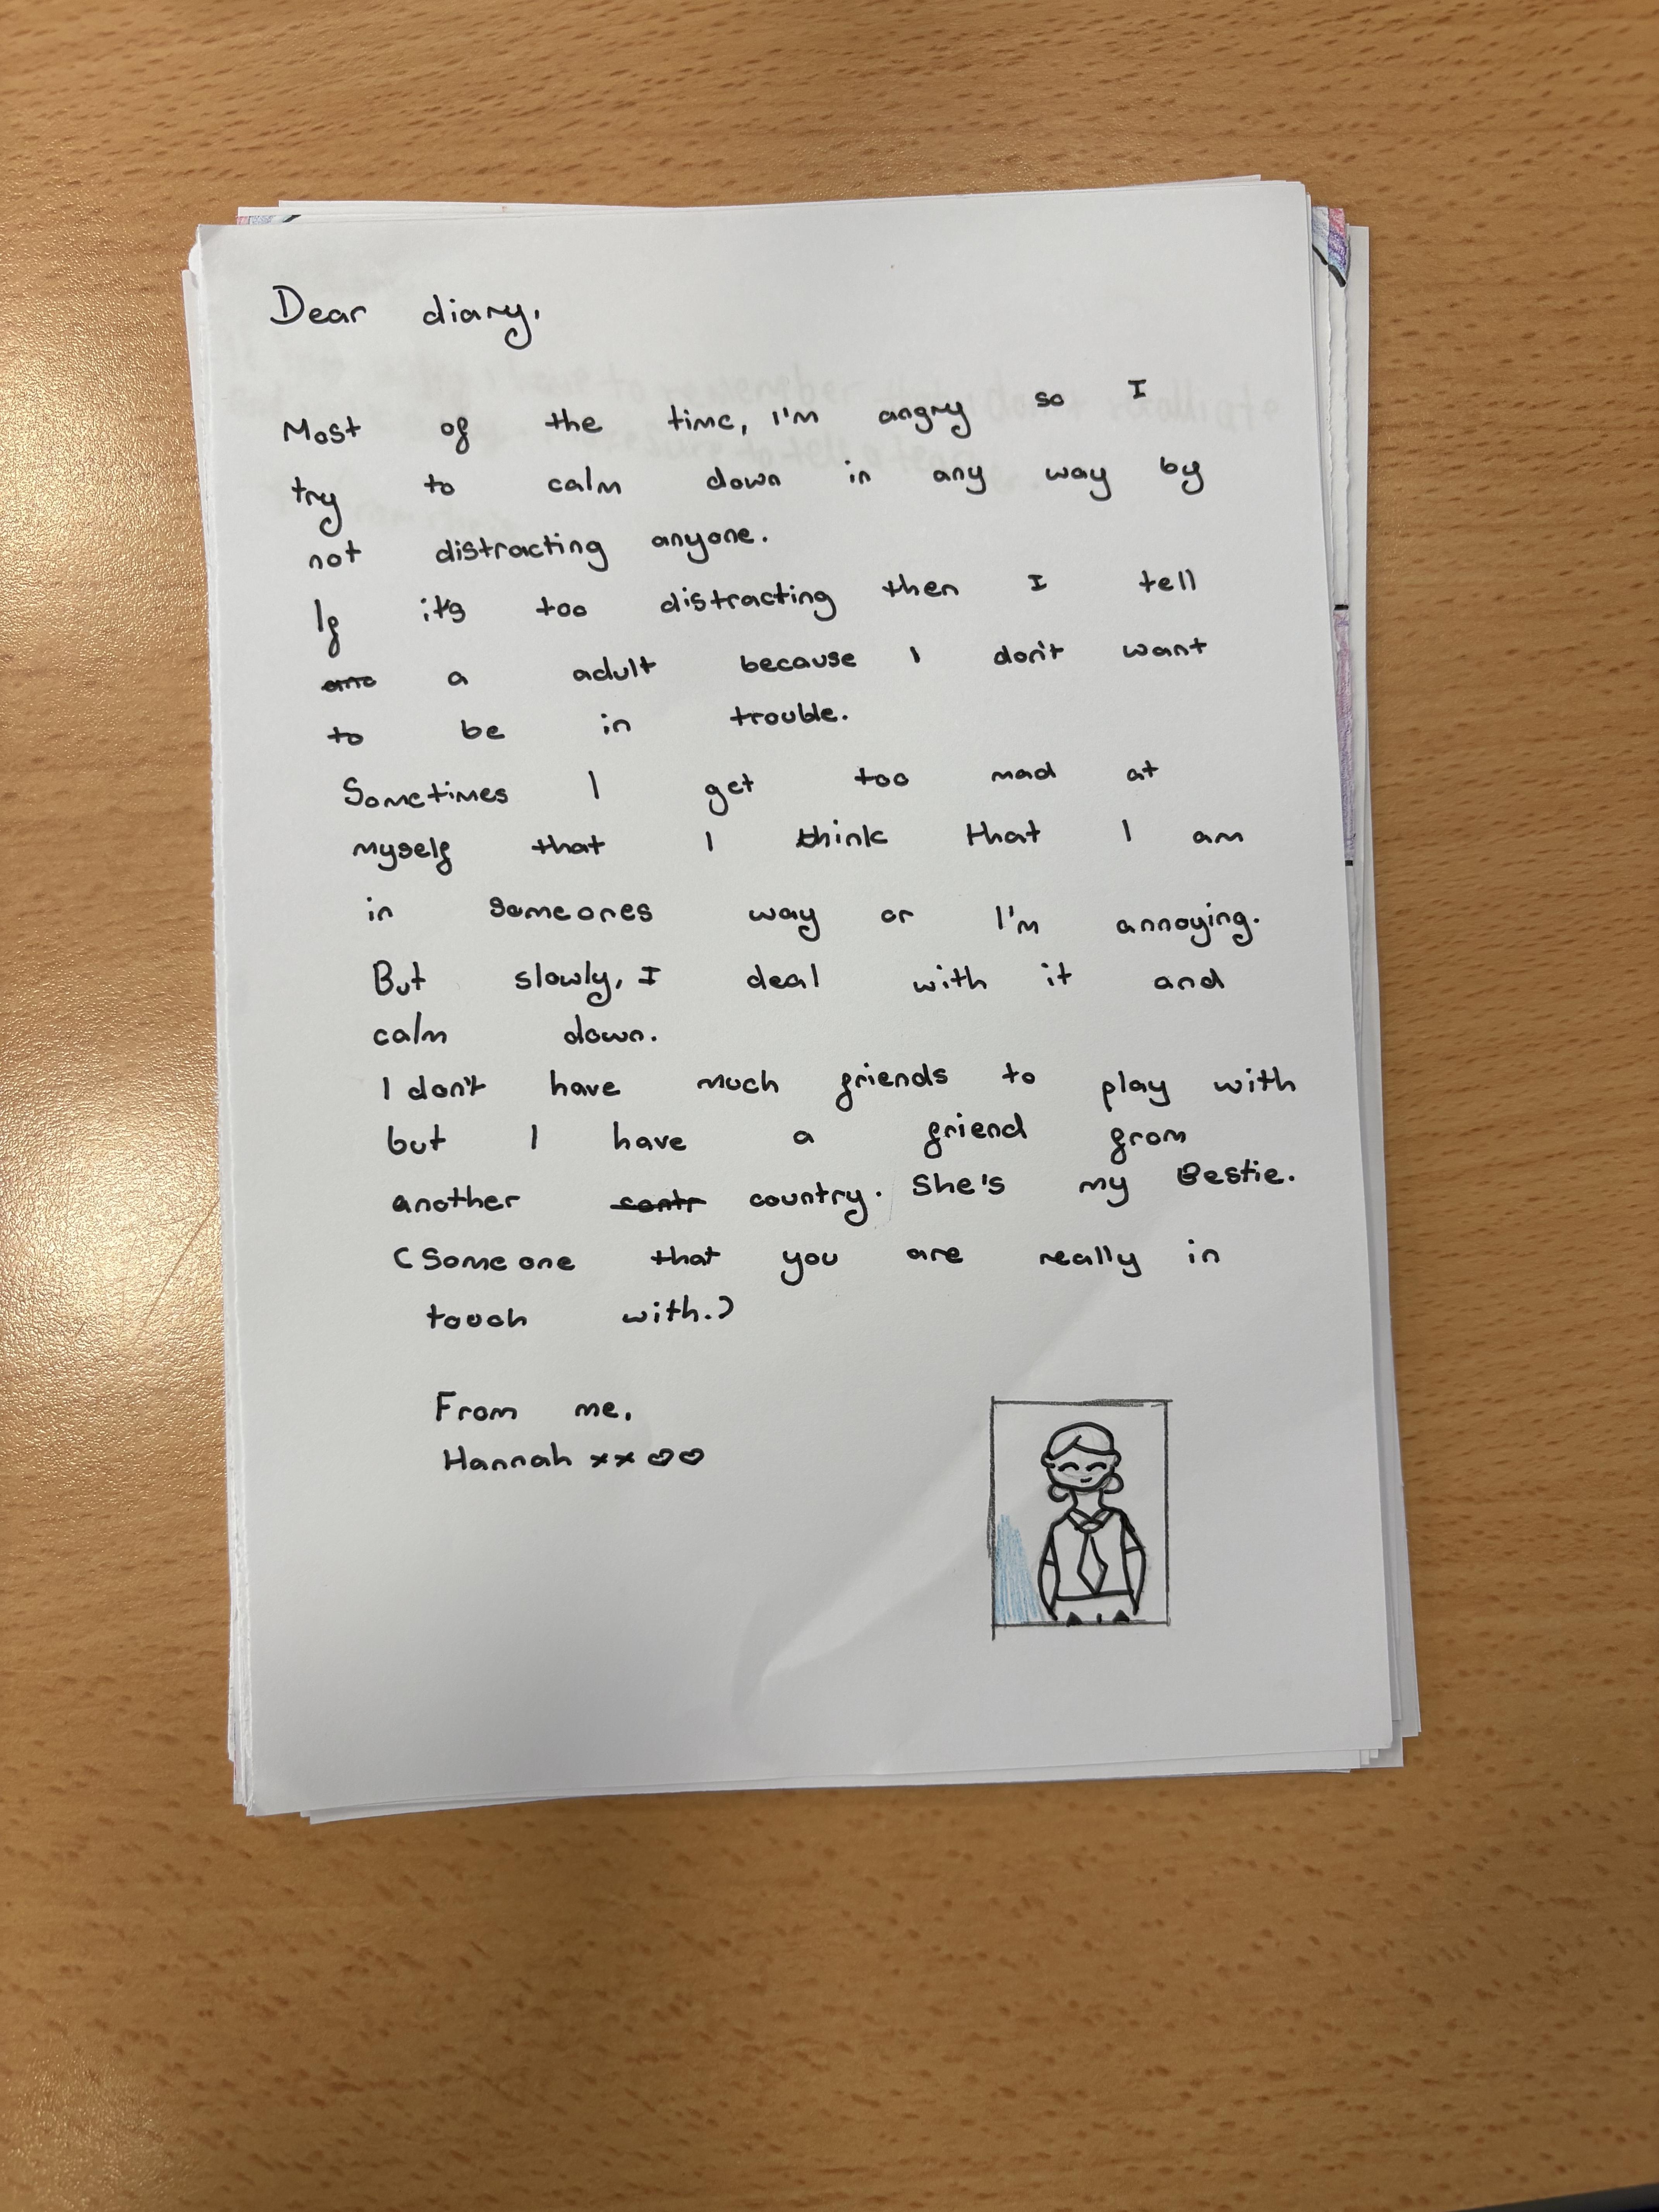 Dear diary,
Most of the time, I'm angry so I
try to calm down in any way by
not distracting anyone.
If it's too distracting then I tell
a adult because I don't want
to be in trouble.
Sometimes I get too mad at
myself that I think that I am
in someones way or I'm annoying.
But slowly, I deal with it and
calm down.
I don't have much friends to play with
but I have a friend from
another contr country. She's my Bestie.
(Someone that you are really in
touch with.)
From me,
Hannah xx ♡♡